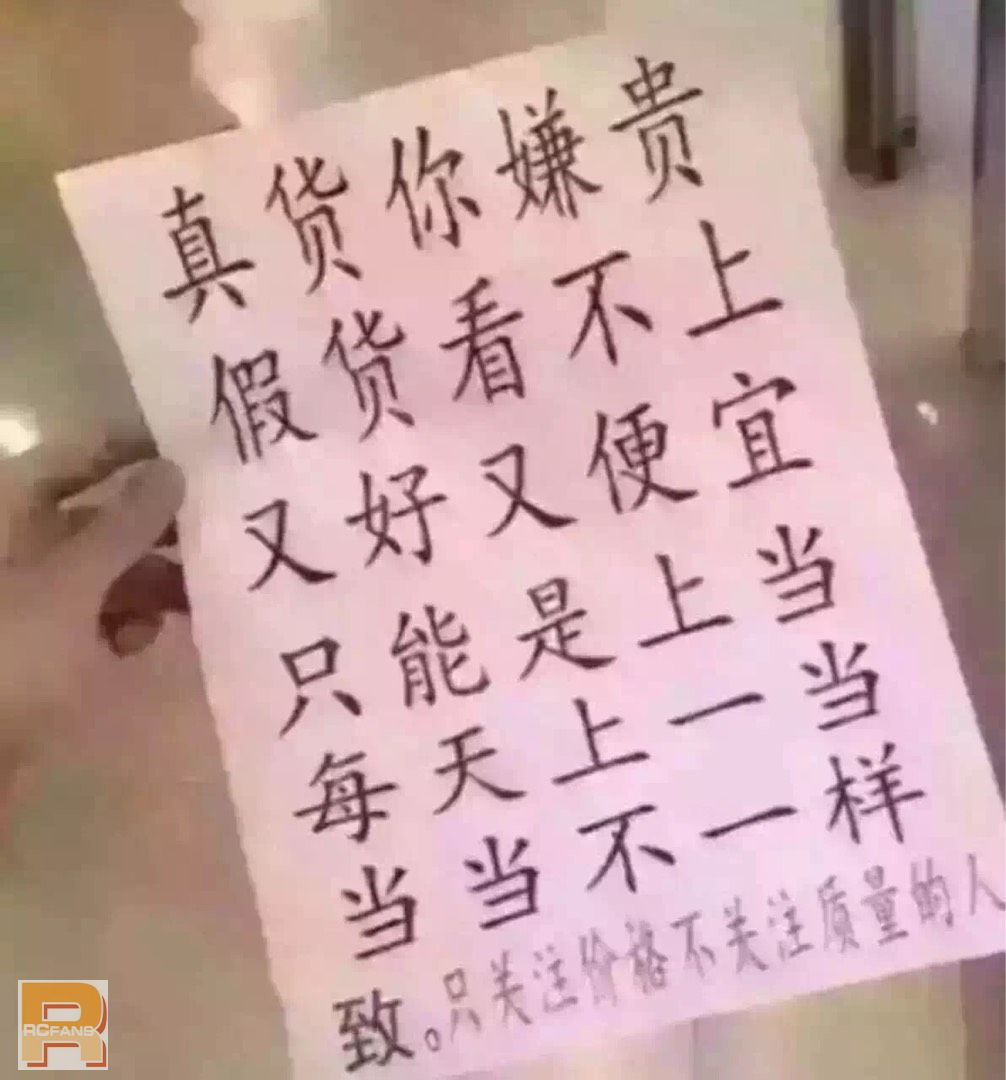 真货你嫌贵
假货看不上
又好又便宜
只能是上当
每天上一当
当当不一样
致。只关注价格不关注质量的人
RCFANS